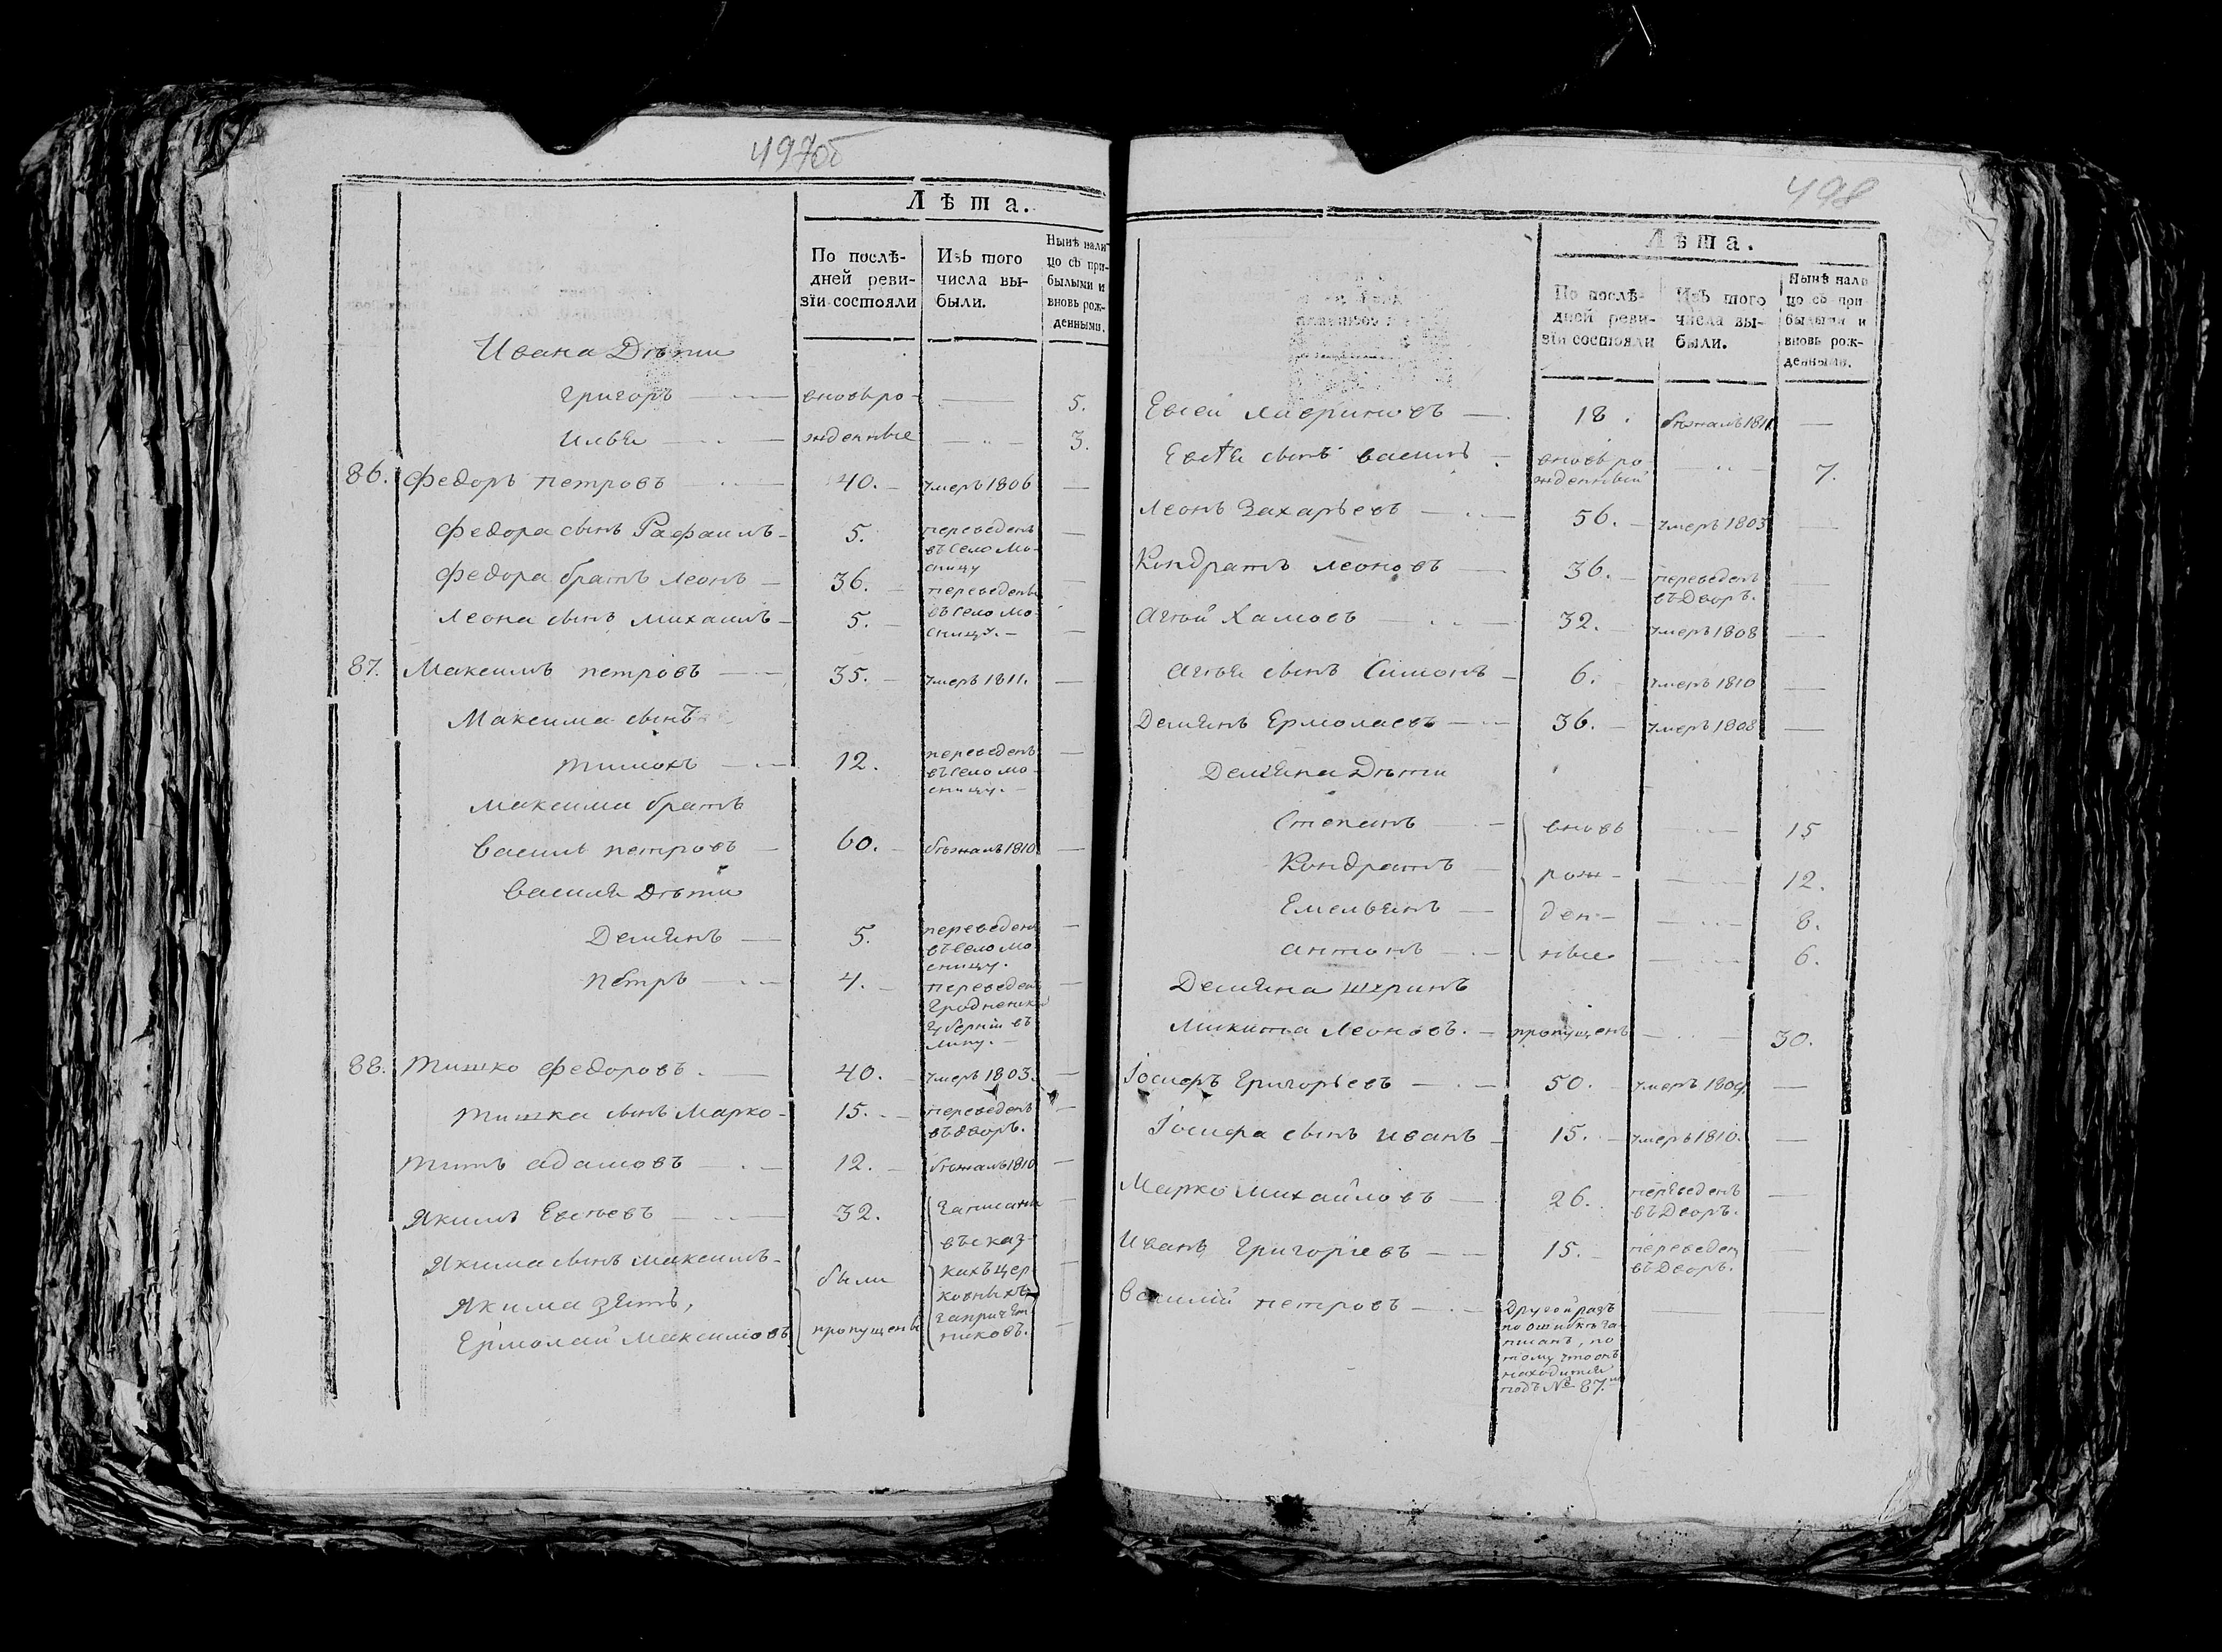 497об
Лѣта.
По послѣ-
дней реви-
зіи состояли
Изъ того
числа вы-
были.
Нынѣ нали
цо съ при-
былыми и
вновь рож-
денными.
Ивана Дѣти
Григоръ вновьро- 5.
Илья жденные 3.
86. Федоръ Петровъ 40. умеръ 1806
Федора сынъ Рафаилъ 5. переведенъ
въ село Мо-
сницу
Федора братъ Леонъ 36. переведенъ
Леона сынъ Михаилъ 5. въ село Мо
сницу.
87. Максимъ Петровъ 35. умеръ 1811.
Максима сынъ
Тимохъ 12. переведенъ
въ село Мо-
сницу.
Максима братъ
Василь Петровъ 60. бѣжалъ 1810
Василя Дѣти
Демянъ 5. переведенъ
въ село Мо
сницу.
Петръ 4. переведен
Гродненской
Губерніи въ
Липу.
88. Тишко Федоровъ 40. умеръ 1803.
Тишка сынъ Марко 15. переведенъ
въ дворъ.
Титъ Адамовъ 12. бѣжалъ 1810
Якимъ Евсѣевъ 32. записаны
въ сказ-
Якима сынъ Максимъ были кахъ цер
Якима зять, ковныхъ
Ермолай Максимовъ пропущены запричет
никовъ.
498
Лѣта.
По послѣ-
дней реви-
зіи состояли
Изъ того
числа вы-
были.
Нынѣ нали
цо съ при-
былыми и
вновь рож-
денными.
Евсей Лавриновъ 18. бѣжалъ 1811
Евсѣя сынъ Василь вновьро- 7.
жденный
Леонъ Захарьевъ 56. умеръ 1803
Кондратъ Леоновъ 36. переведенъ
въ Дворъ.
Агѣй Хамовъ 32. умеръ 1808
Агѣя сынъ Симонъ 6. умеръ 1810
Демянъ Ермолаевъ 36. умеръ 1808
Демяна Дѣти
Степанъ вновь 15
Кондратъ рож- 12.
Емельянъ ден- 8.
Антонъ ные 6.
Демяна шуринъ
Микита Леоновъ. пропущенъ 30.
Іосифъ Григорьевъ 50. умеръ 1809.
Іосифа сынъ Иванъ 15. умеръ 1810.
Марко Михайловъ 26. переведенъ
въ Дворъ.
Иванъ Григоріевъ 15. переведен
въ Дворъ.
Василій Петровъ Другой разъ
по ошибкѣ за
писанъ, по
тому что онъ
находится
подъ № 87.м